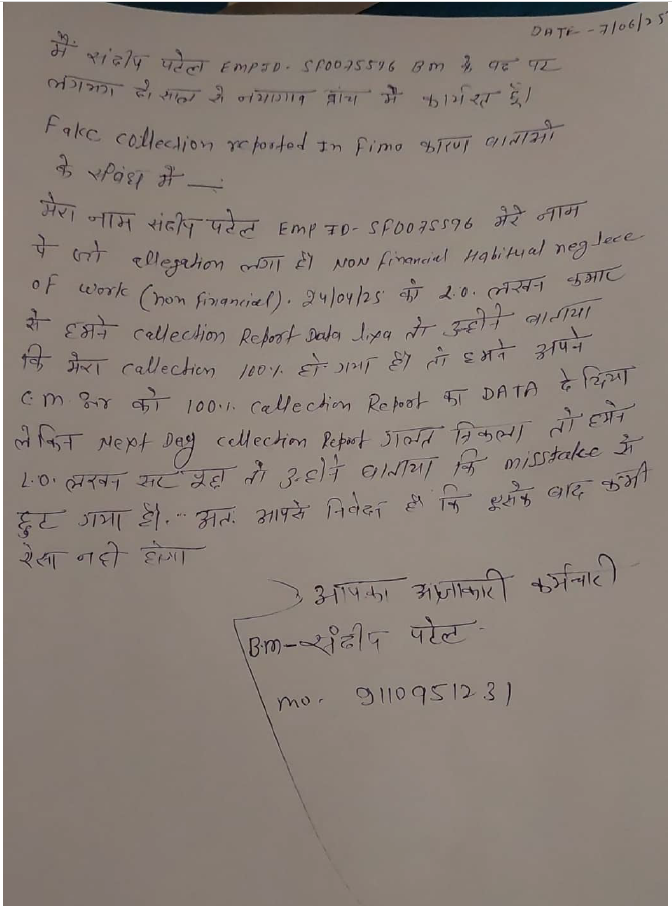 DATE - 7/06/25
मैं संदीप पटेल EMPID- SF0075596 BM के पद पर
लगभग दो साल से नयागांव ब्रांच में कार्यरत हूँ।
Fake collection reported In Fimo कारण बातामो
के संबंध में —
मेरा नाम संदीप पटेल EMP ID- SF0075596 मेरे नाम
पे जो allegation लगा है। NON financial Habitual neglece
of work (non financial). 24/04/25 को L.O. लखन कुमार
से हमने collection Report Data liya तो उन्होंने बाताया
कि मेरा collection 100% हो गया है। तो हमने अपने
C.M. को 100% collection Report का DATA दे दिया
लेकिन Next Day collection Report गलत निकला तो हमने
L.O. लखन पूछा तो उन्होंने बाताया कि misstake से
छुट गया है। अतः आपसे निवेदन है कि इसके बाद कभी
ऐसा नही होगा
आपका आज्ञाकारी कर्मचारी
B.M- संदीप पटेल
mo. 9110951231